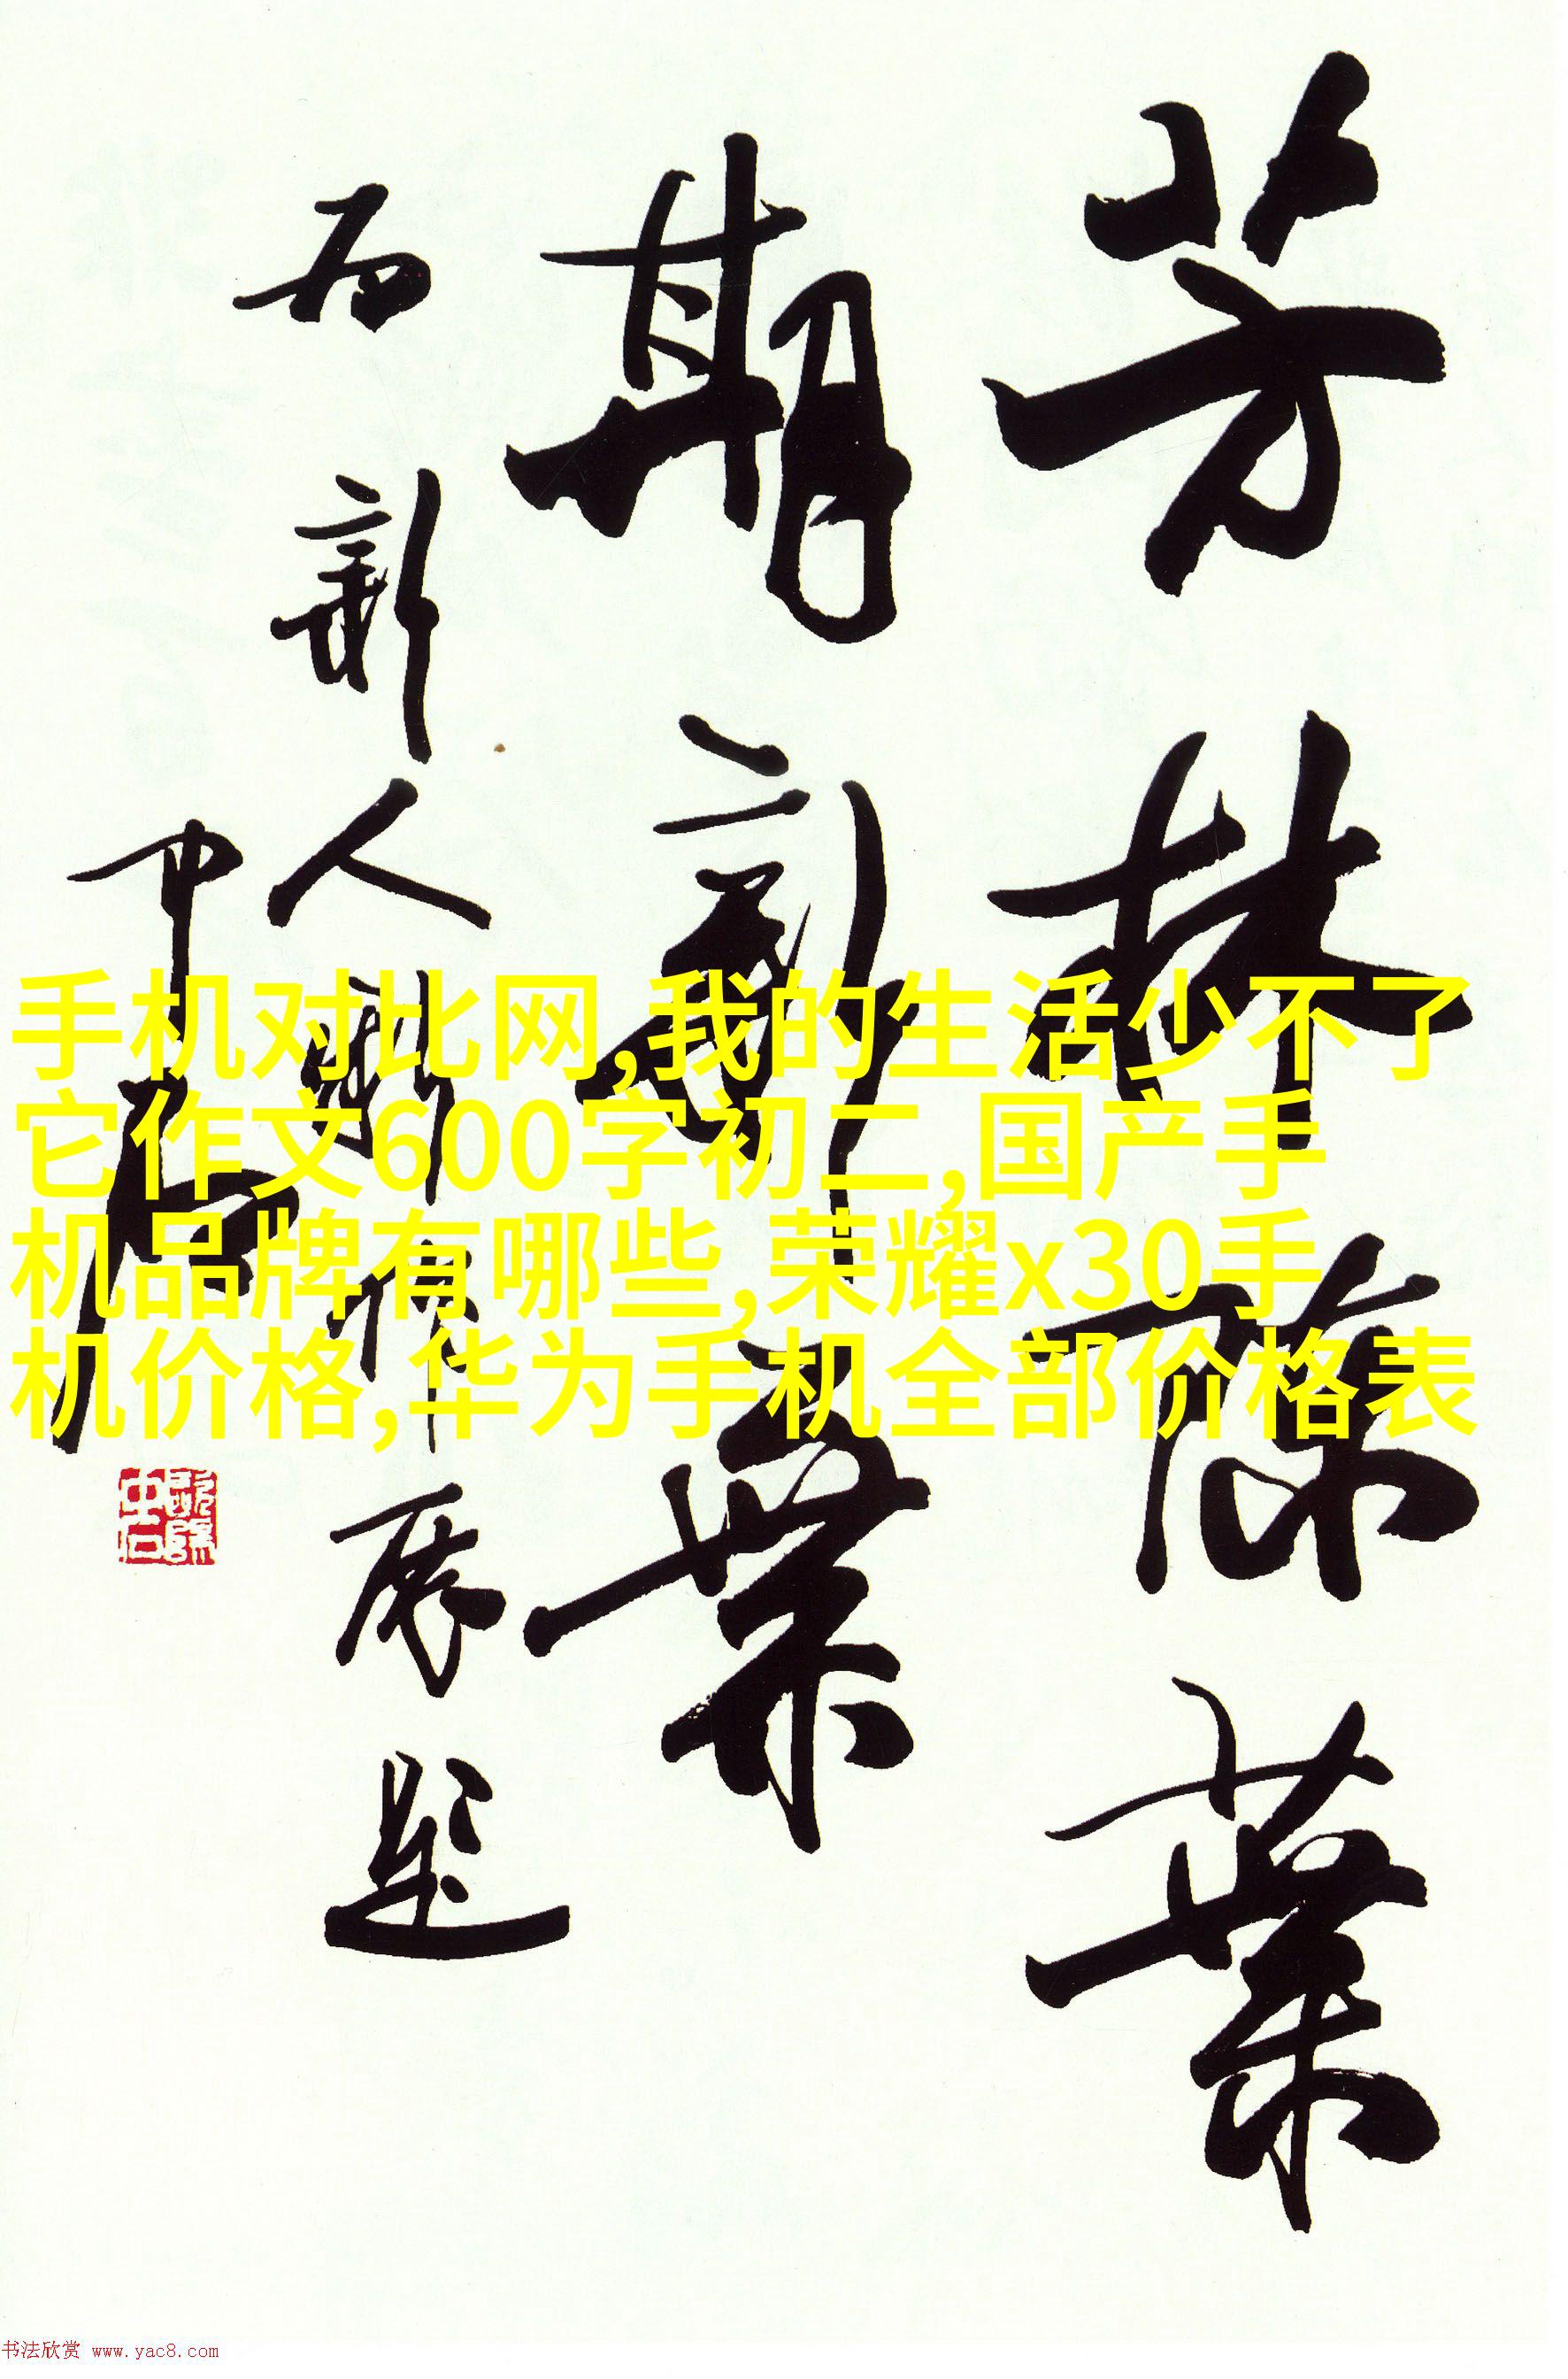 芳林陈叶
期新叶
为新人联作展题
中石
手机对比网,我的生活少不了
它作文600字初二,国产手
机品牌有哪些,荣耀x30手
机价格,华为手机全部价格表
书法欣赏 www.yac8.com